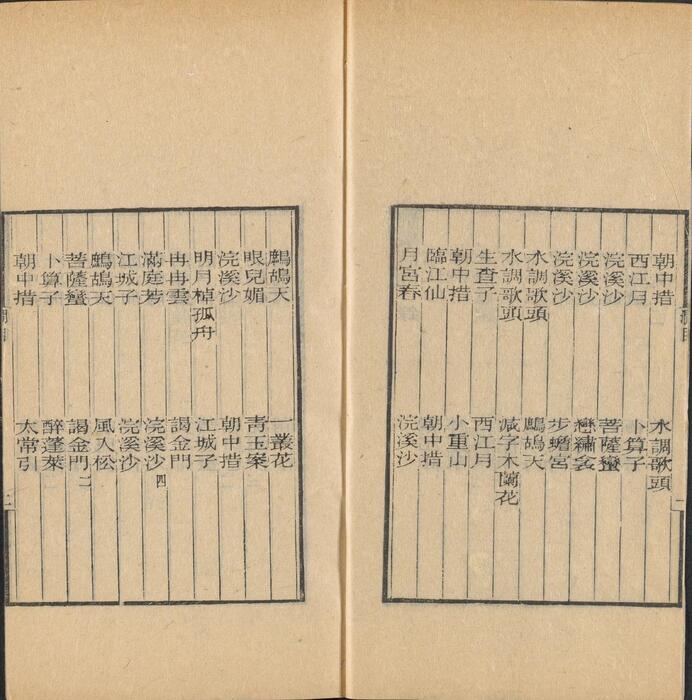 朝中措 水調歌頭
西江月 卜算子
浣溪沙 菩薩蠻
浣溪沙 戀繡衾
浣溪沙 步蟾宮
水調歌頭 鷓鴣天
水調歌頭 減字木蘭花
生查子 西江月
朝中措 小重山
臨江仙 朝中措
月宮春 浣溪沙
鷓鴣天 一叢花
眼兒媚 青玉案
浣溪沙 朝中措
明月棹孤舟 江城子
冉冉雲 謁金門
滿庭芳 浣溪沙四
江城子 浣溪沙
鷓鴣天 風入松
菩薩蠻 謁金門二
卜算子 醉蓬萊
朝中措 太常引